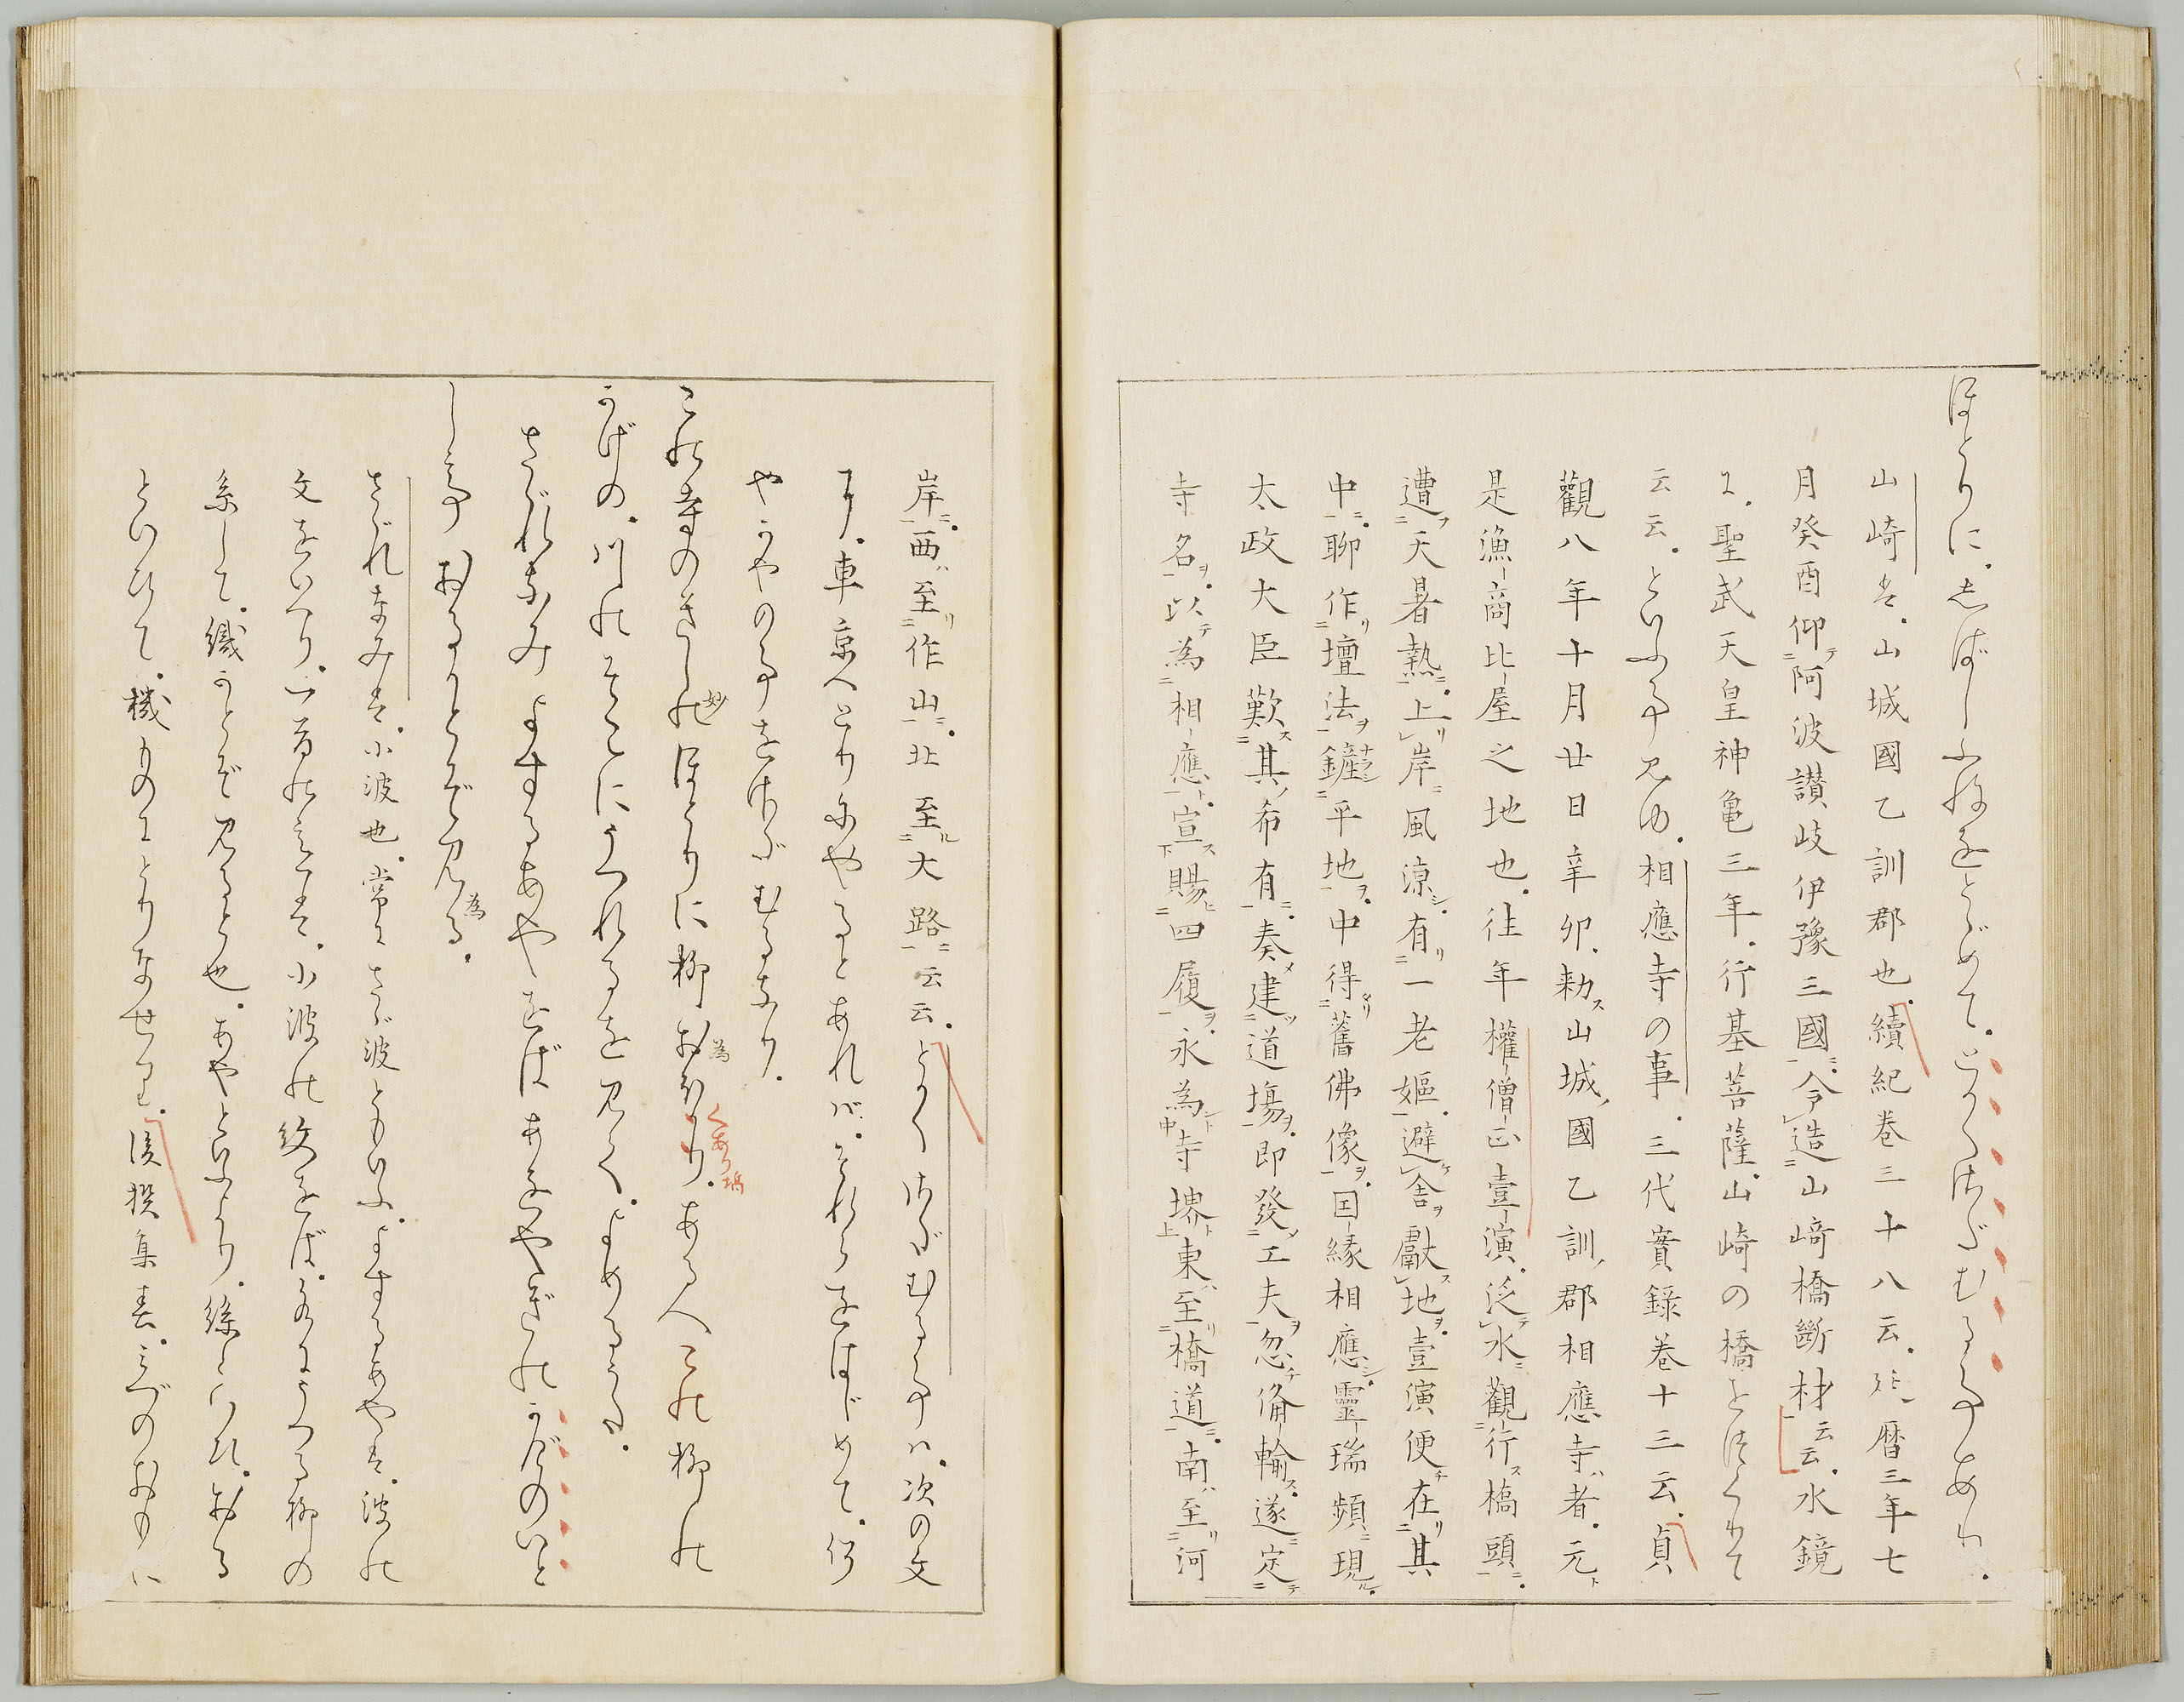 ほとりに。しばしふねをとゞめて。とかくさだむる事あり。
山崎は。山城國乙訓郡也。續紀巻三十八云。延暦三年七
月癸酉仰阿波讃岐伊豫三國。令造山﨑橋斷材云云。水鏡
に。聖武天皇神亀三年。行基菩薩。山崎の橋をつくりて
云云。といふ事見ゆ。相應寺の事。三代實録巻十三云。貞
觀八年十月廿日辛卯。勅山城國乙訓郡相應寺者。元
是漁商比屋之地也。往年權僧正壹演。泛水觀行橋頭。
遭天暑熱。上岸風涼。有一老嫗。避舎獻地。壹演便在其
中。聊作壇法鏟平地。中得舊佛像。因縁相應。靈瑞頻現。
太政大臣歎其希有。奏建道場。即發工夫。忽俻輪。遂定
寺名。以為相應。宣賜四履。永為寺堺。東至橋道。南至河
岸。西至作山。北至大路云云。とかくさだむる事ハ。次の文
に。車京へとりにやるとあれば。それらをはじめて。何
やうやの事をさだむるなり。
これ寺のきしのほとりに柳おほかり。ある人この柳の
かげの。川のそこにうつれるを見て。よめるうた。
さゞれなみよするあやをばあをやぎのかげのいと
し事おるかとぞ見る。
さゞれなみは。小波也。常にさゞ波ともいふ。よするあやは。波の
文をいへり。一首の意は。小波の紋をば。水にうつる柳の
糸して。織かとぞ見ると也。あやといふより。絲といひ。おる
といひて。機ものにとりなせり。後撰集春。みづのおもに